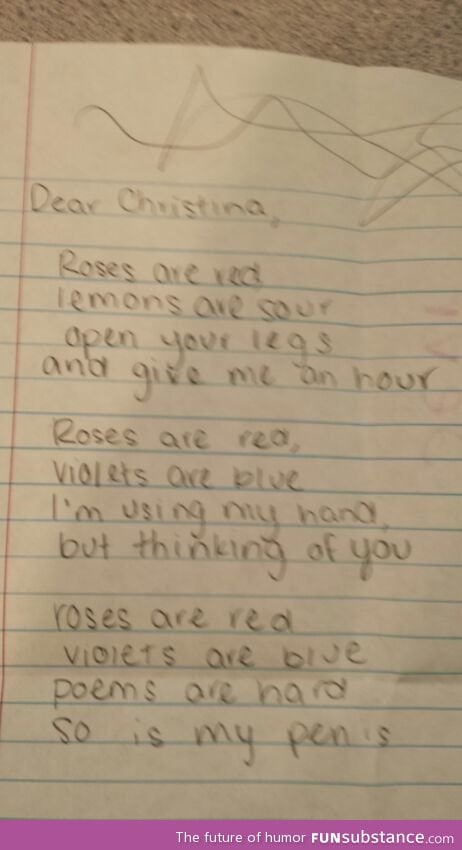 Dear Christina,
Roses are red
lemons are sour
open your legs
and give me an hour
Roses are red,
violets are blue
I'm using my hand,
but thinking of you
roses are red
violets are blue
poems are hard
so is my penis
The future of humor FUNsubstance.com